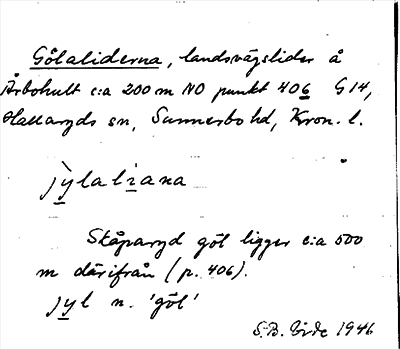 Gölaliderna, landsvägslider å
Årbohult c:a 200 m NO punkt 406 G 14,
Hallaryds sn, Sunnerbo hd, Kron. l.
jy̱lali̱ana
Skåparyd göl ligger c:a 500
m därifrån (p. 406).
jy̱l n. 'göl'
S.B. 1946